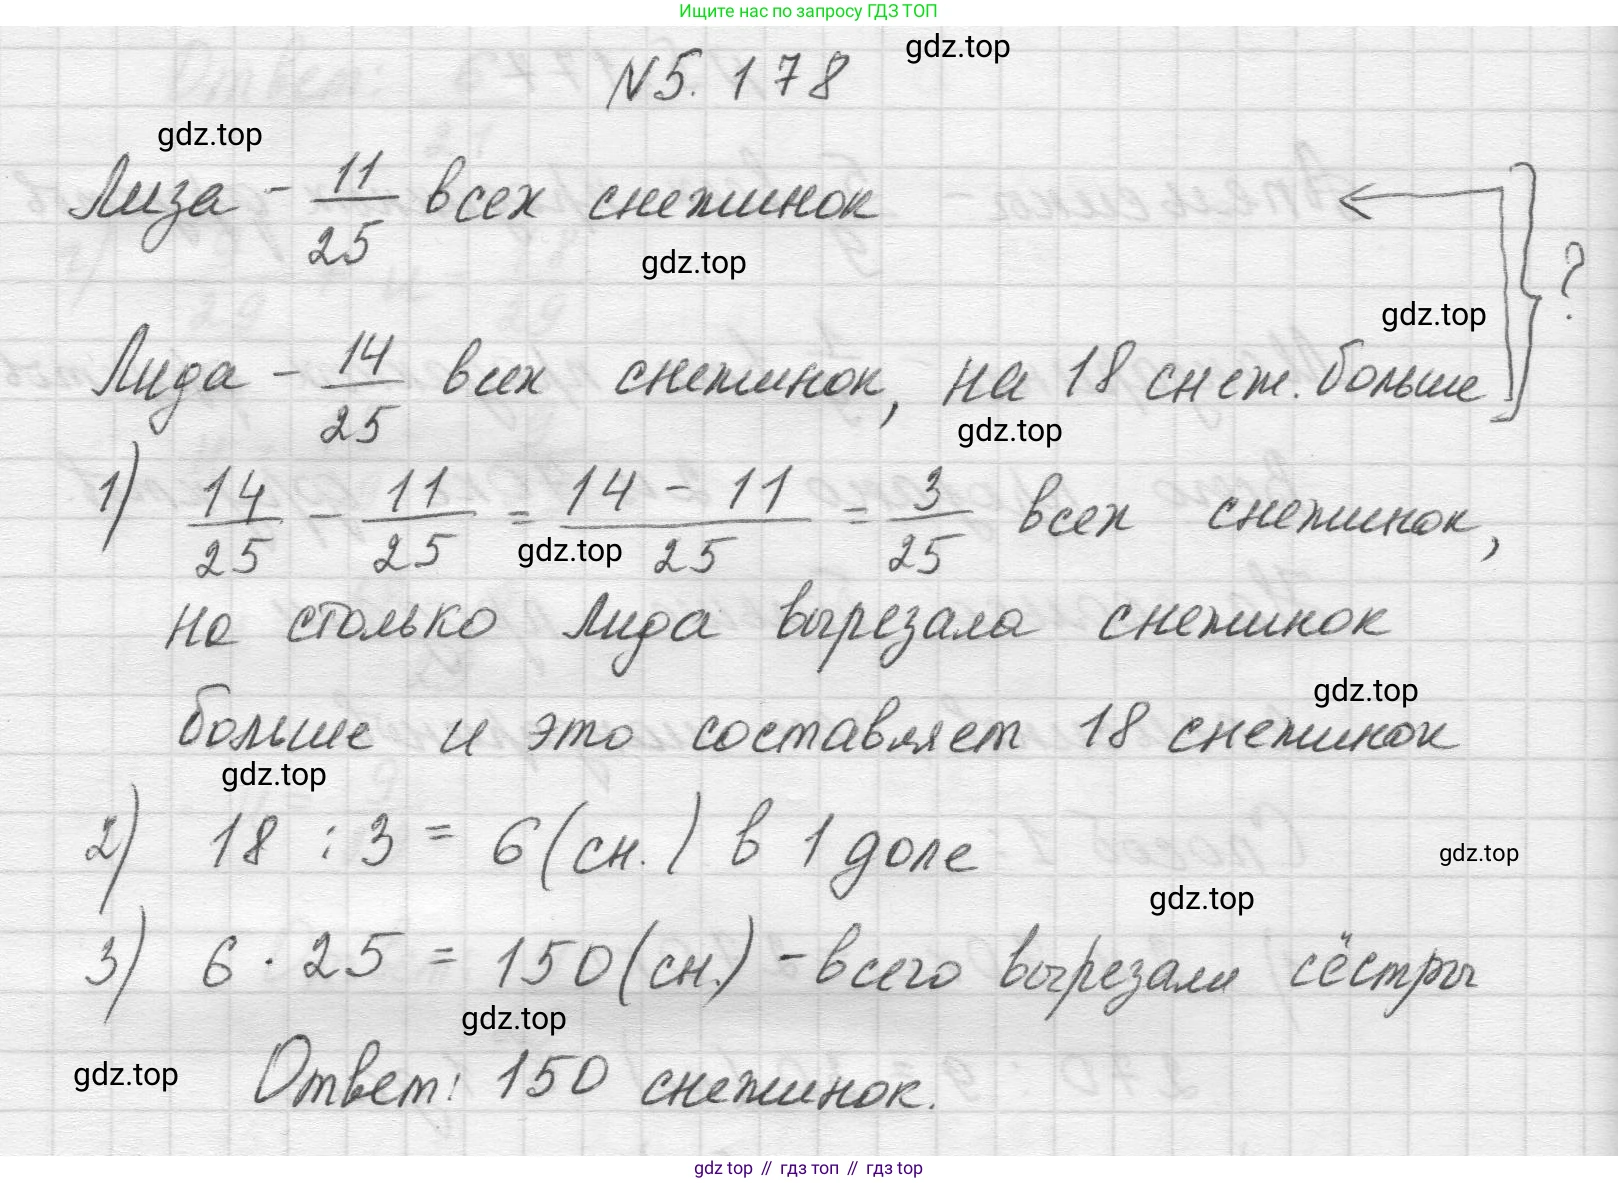 Ищите нас по запросу ГДЗ ТОП
gdz.top
N5.178
gdz.top
Лиза - 11/25 всех снежинок
gdz.top
?
gdz.top
Лида - 14/25 всех снежинок, на 18 снеж. больше
gdz.top
1) 14/25 - 11/25 = 14 - 11/25 = 3/25 всех снежинок,
gdz.top
на столько Лида вырезала снежинок
gdz.top
больше и это составляет 18 снежинок
gdz.top
2) 18 : 3 = 6 (сн.) в 1 доле
gdz.top
gdz.top
3) 6 · 25 = 150 (сн.) - всего вырезали сёстры
gdz.top
gdz.top
Ответ: 150 снежинок.
gdz top // гдз топ // гдз top